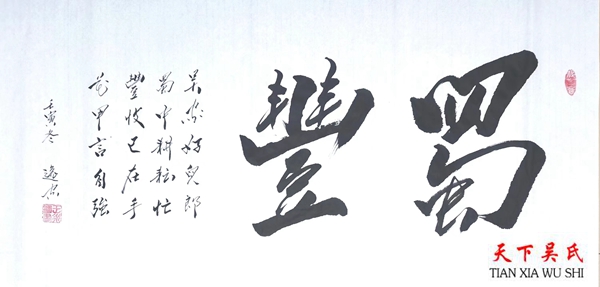 蜀豐
吴家好兒郎
蜀中耕耘忙
豐收已在手
花甲言自強
壬寅冬
天下吴氏
TIAN XIA WU SHI